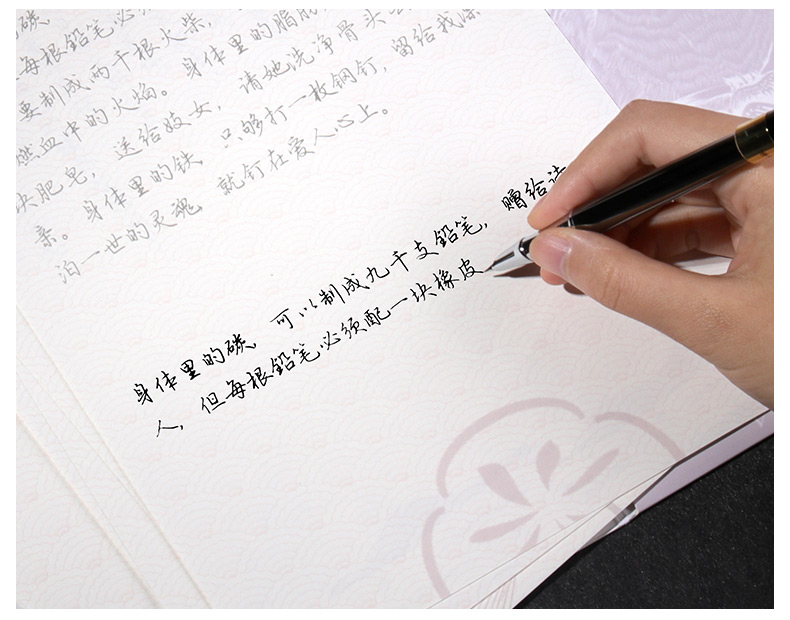 碳
每根鉛笔必须
要制成两千根火柴,
燃血中的火焰。身体里的脂肪
块肥皂, 送给妓女, 请她洗净骨头
亲。身体里的铁 只够打一枚钢钉, 留给我漂
泊一世的灵魂 就钉在爱人心上。
身体里的碳 可以制成九千支鉛笔, 赠给诗
人, 但每根鉛笔必须配一块橡皮